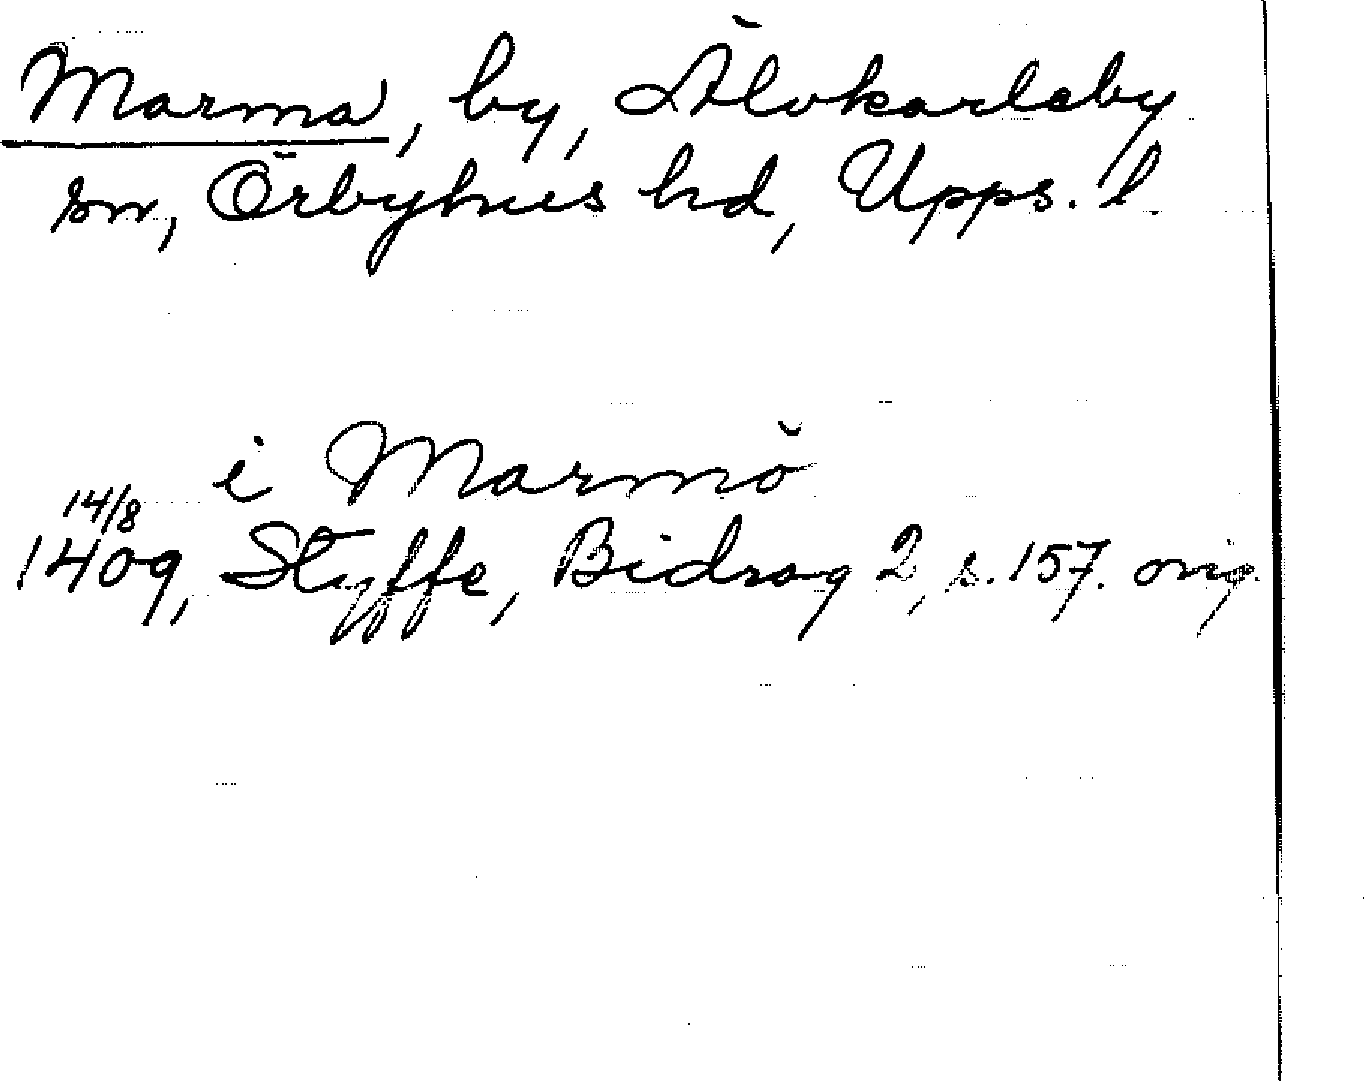 Marma, by, Älvkarleby
sn, Örbyhus hd, Upps. l
i Marmö
14/8
1409, Styffe, Bidrag 2, s. 157. orig.